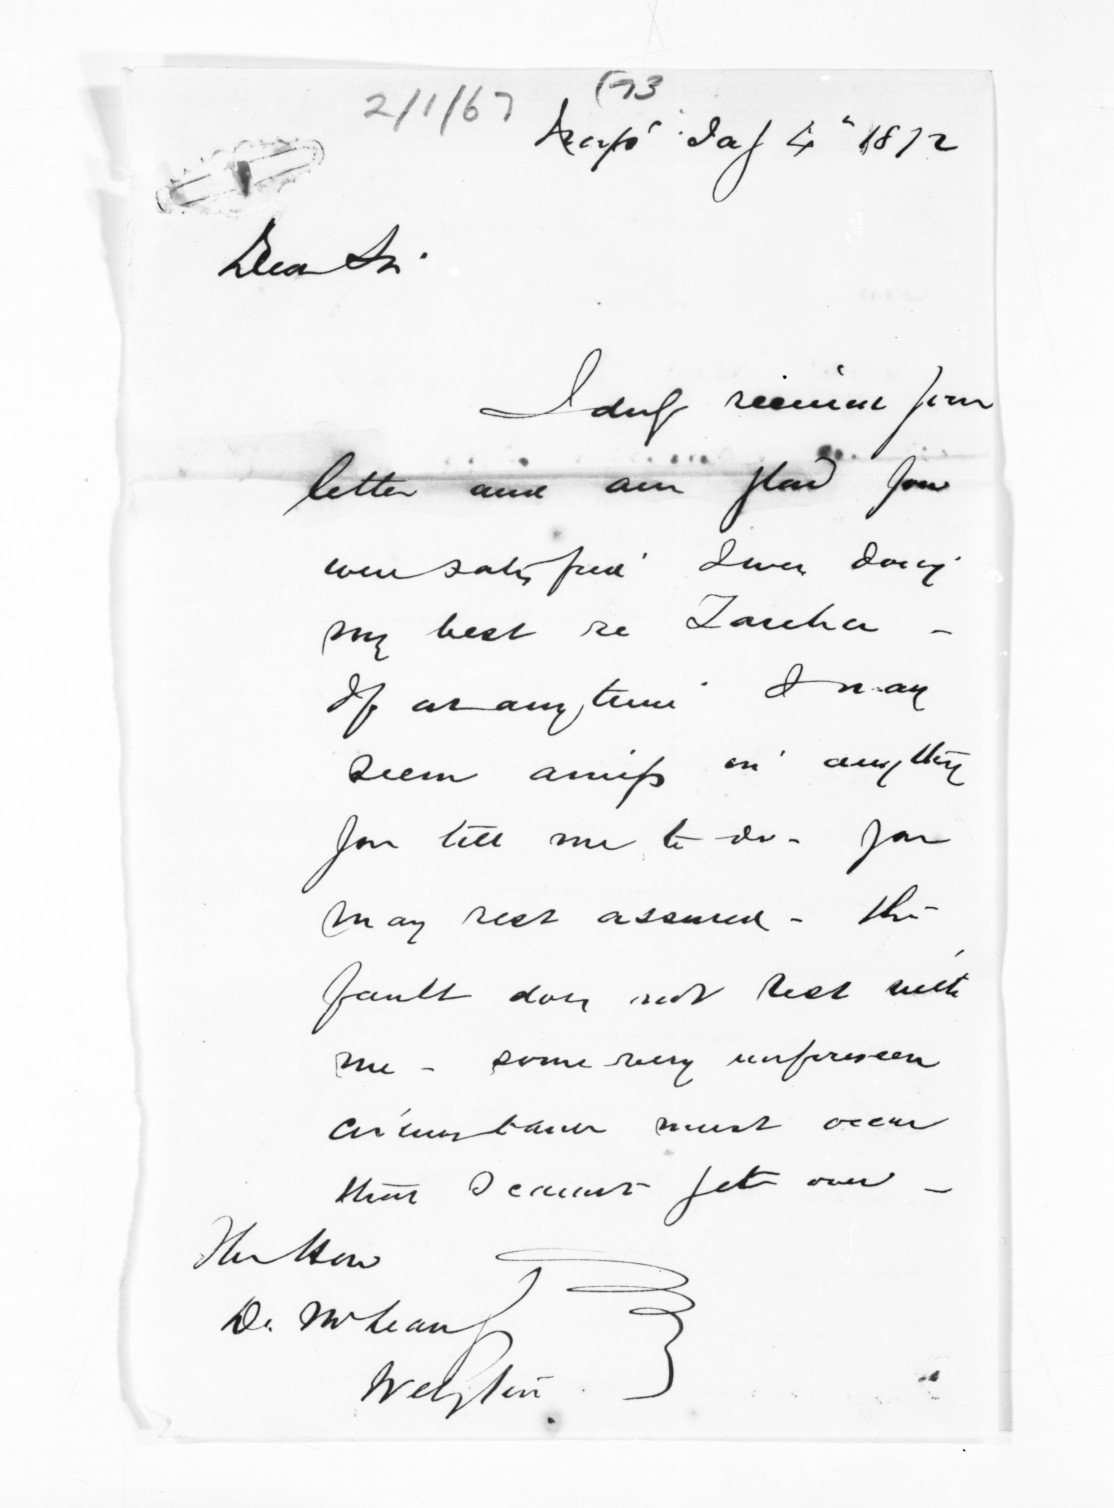 2/1/67
(73
Jay 4" 1872
Dear Sir
I duly received your
letter and am glad you
were satisfied I was doing
my best re Tareha -
If at any time I may
seem amiss in anything
you tell me to do - you
may rest assured - the
fault does not rest with
me - some very unforeseen
circumstance must occur
that I cannot get over -
The Hon
D. McLean
Welgtin